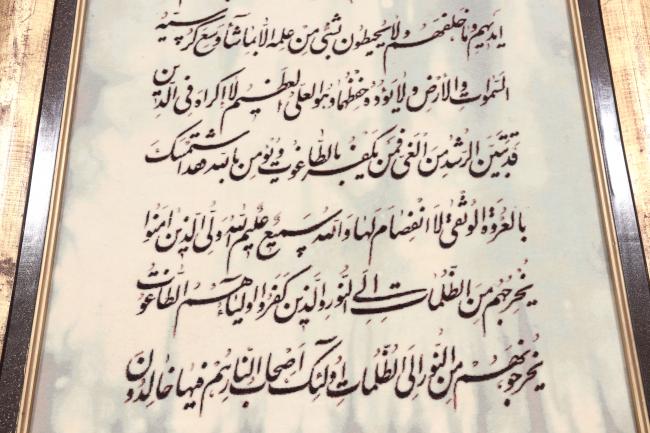 ایدیهم وما خلفهم ولا یحیطون بشئ من علمه الا بما شاء وسع کرسیه
السَّمٰوات والاَرض ولا یَؤُدُه حِفظُهُما وهو العلی العظیم لا اکراه فی الدین
قَد تَبَیَّنَ الرُّشدُ مِنَ الغَیِّ فَمَن یَکفُر بِالطّاغوت ویُؤمِن بِاللّه فَقَد استَمسَکَ
بِالعُروَةِ الوُثقی لَا انفِصامَ لَها وَاللّهُ سَمیعٌ عَلیمٌ اَللّهُ ولیُّ الَّذینَ آمَنوا
یُخرِجُهُم مِنَ الظُّلُماتِ اِلَی النُّور والَّذینَ کَفَروا اولیاؤُهُم الطّاغوتُ
یُخرِجونَهُم مِنَ النُّورِ اِلَی الظُّلُماتِ اُولئِکَ اَصحابُ النّارِ هُم فیها خالِدونَ